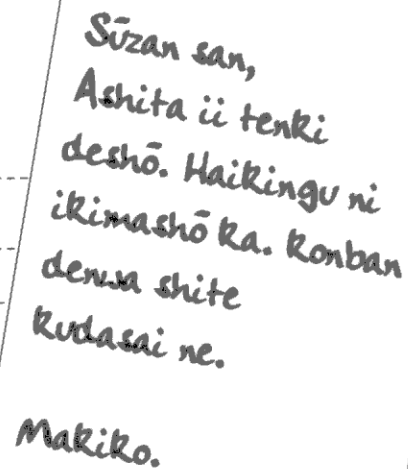 Sūzan san,
Ashita ii tenki
deshō. Haikingu ni
ikimashō ka. Konban
denwa shite
kudasai ne.
Makiko.